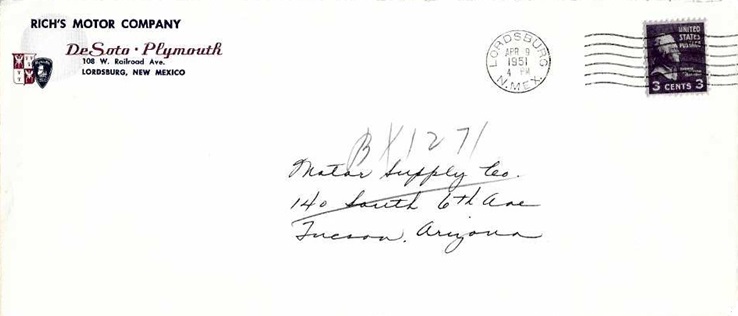 RICH'S MOTOR COMPANY
DeSoto · Plymouth
108 W. Railroad Ave.
LORDSBURG, NEW MEXICO
LORDSBURG
APR 9
1951
4 PM
N.MEX.
UNITED
STATES
POSTAGE
3 CENTS 3
BX1271
Motor Supply Co.
140 South 6th Ave
Tucson, Arizona